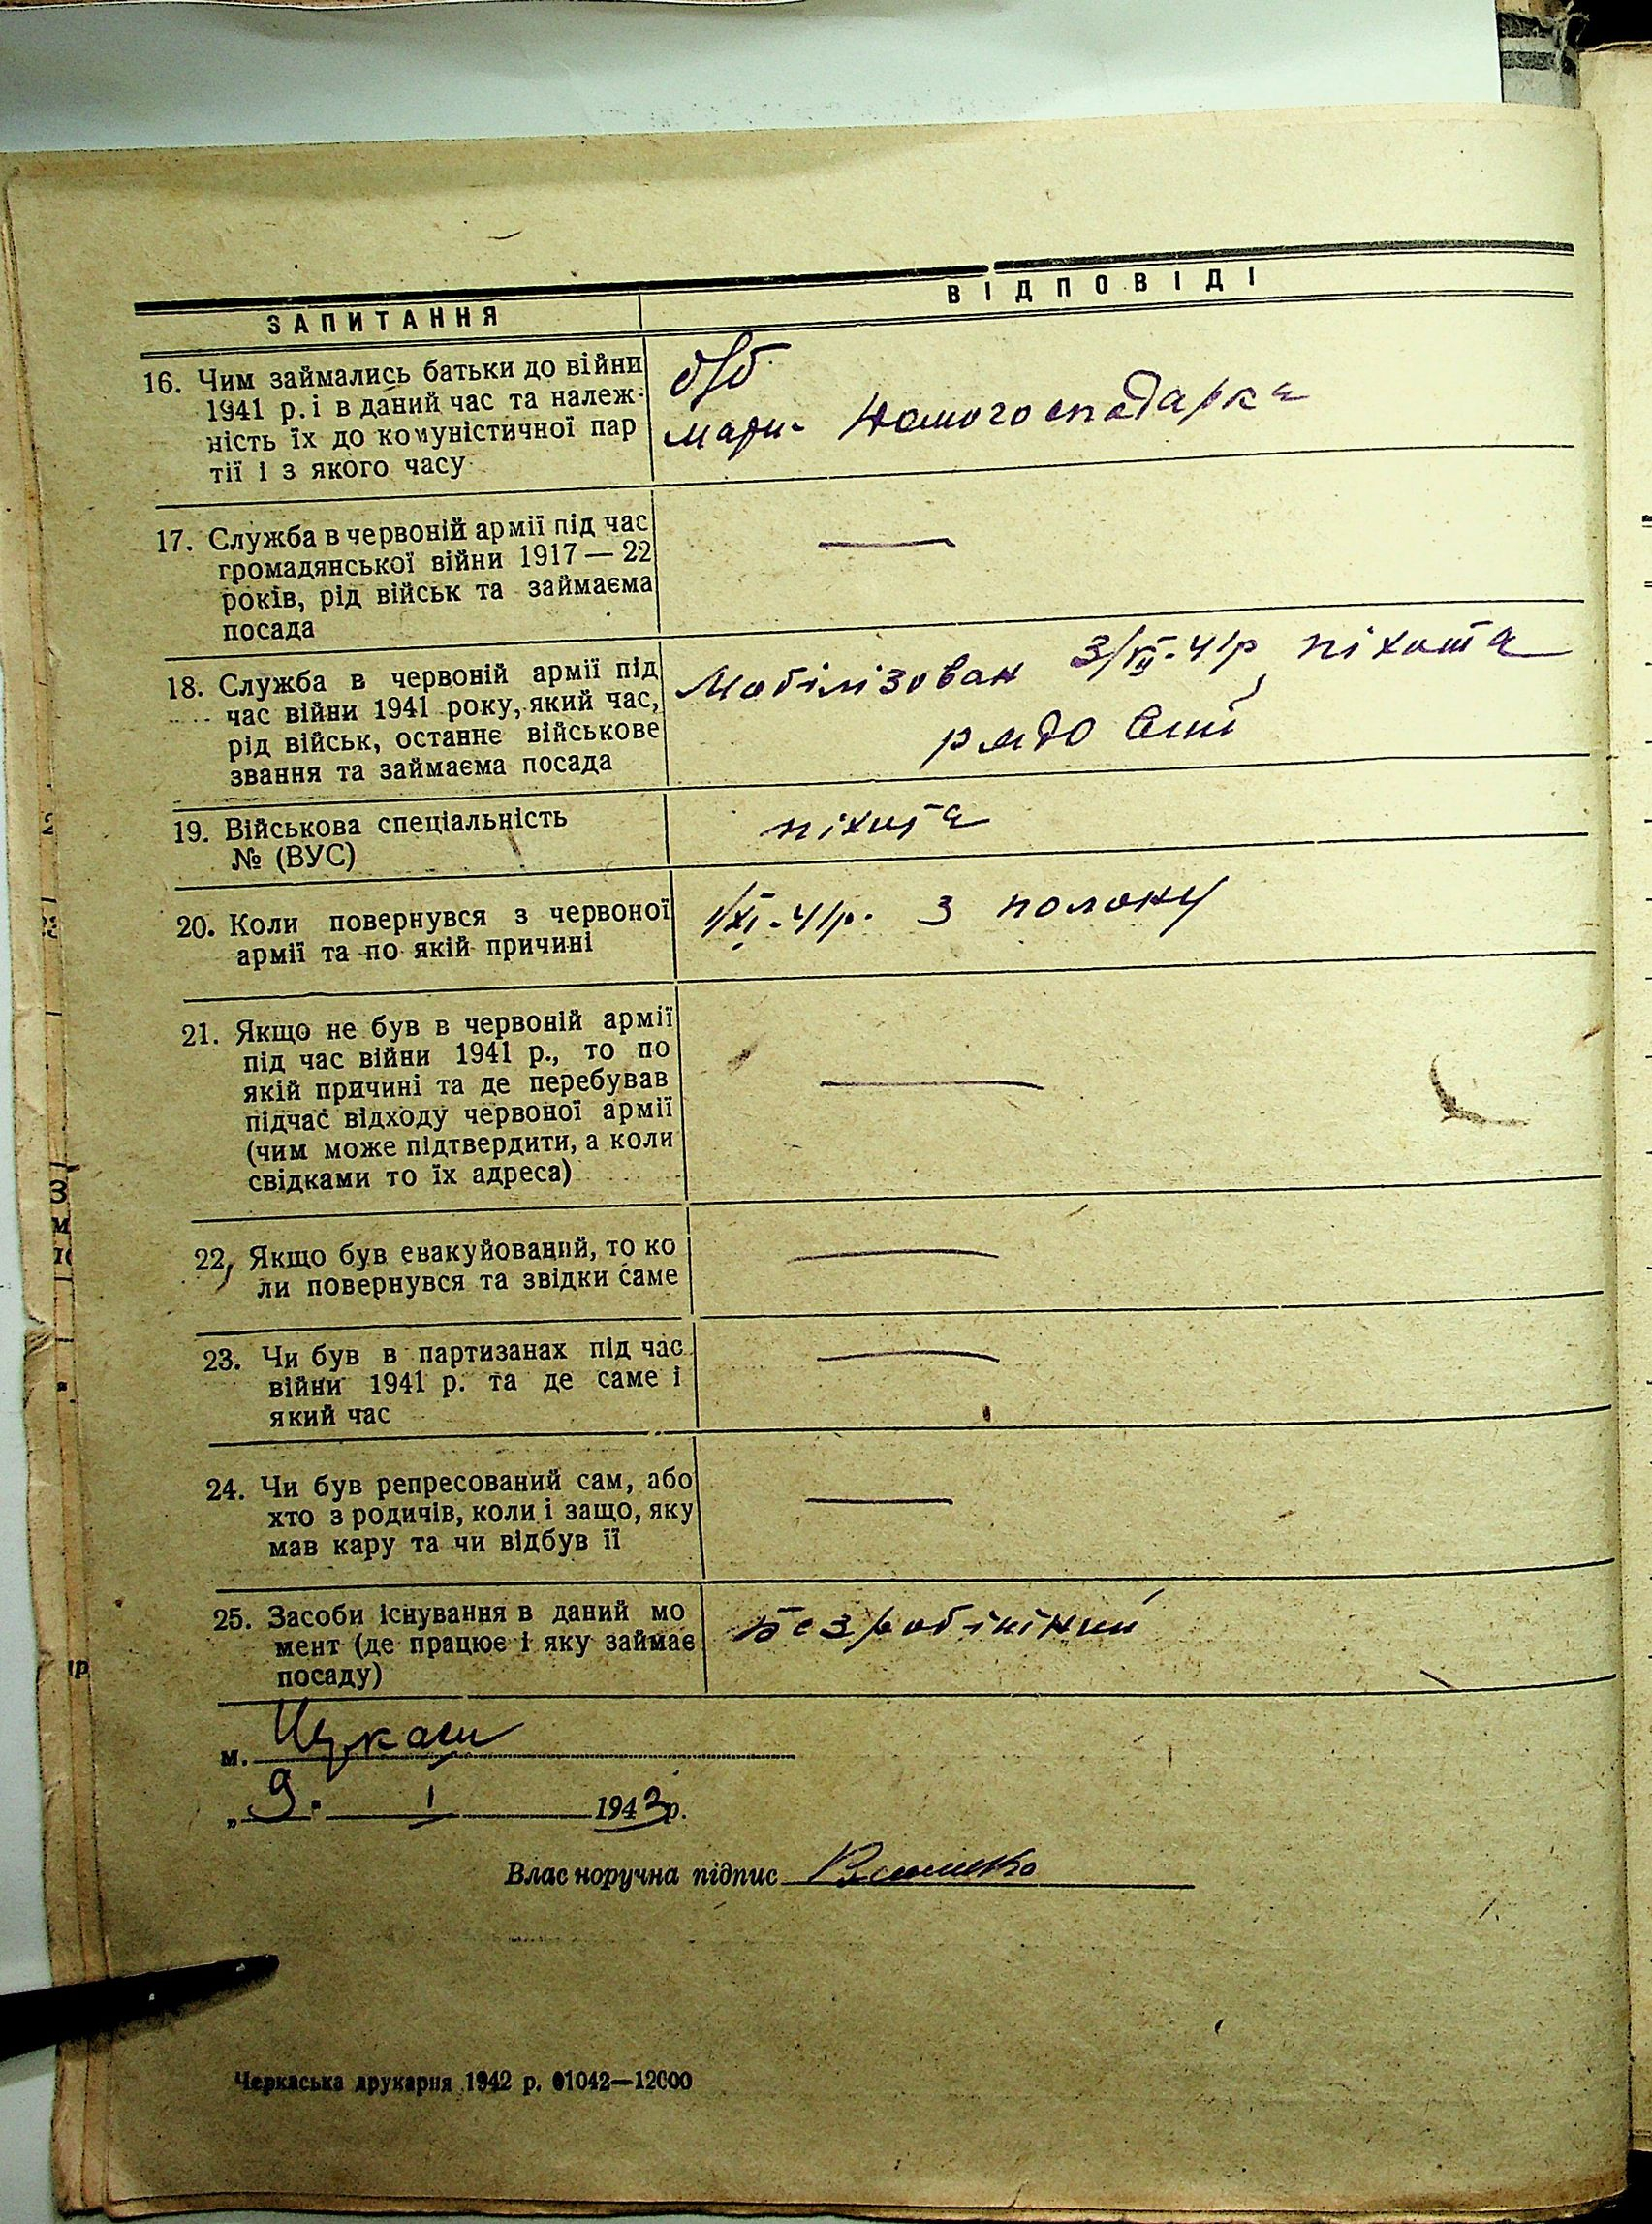 ЗАПИТАННЯ
ВІДПОВІДІ
16. Чим займались батьки до війни
1941 р. і в даний час та належ-
ність їх до комуністичної пар
тії і з якого часу
б/б
мати домогосподарка
17. Служба в червоній армії під час
громадянської війни 1917 — 22
років, рід військ та займаєма
посада
—
18. Служба в червоній армії під
час війни 1941 року, який час,
рід військ, останнє військове
звання та займаєма посада
Мобілізован 3/VII-41р, піхота
рядовий
19. Військова спеціальність
№ (ВУС)
піхота
20. Коли повернувся з червоної
армії та по якій причині
1/XI-41р. З полону
21. Якщо не був в червоній армії
під час війни 1941 р., то по
якій причині та де перебував
підчас відходу червоної армії
(чим може підтвердити, а коли
свідками то їх адреса)
—
22, Якщо був евакуйований, то ко
ли повернувся та звідки саме
—
23. Чи був в партизанах під час
війни 1941 р. та де саме і
який час
—
24. Чи був репресований сам, або
хто з родичів, коли і защо, яку
мав кару та чи відбув її
—
25. Засоби існування в даний мо
мент (де працює і яку займає
посаду)
Безробітний
м.
„ 9. I 1943р.
Влас норучна підпис
Черкаська друкарня 1942 р. 01042—12000